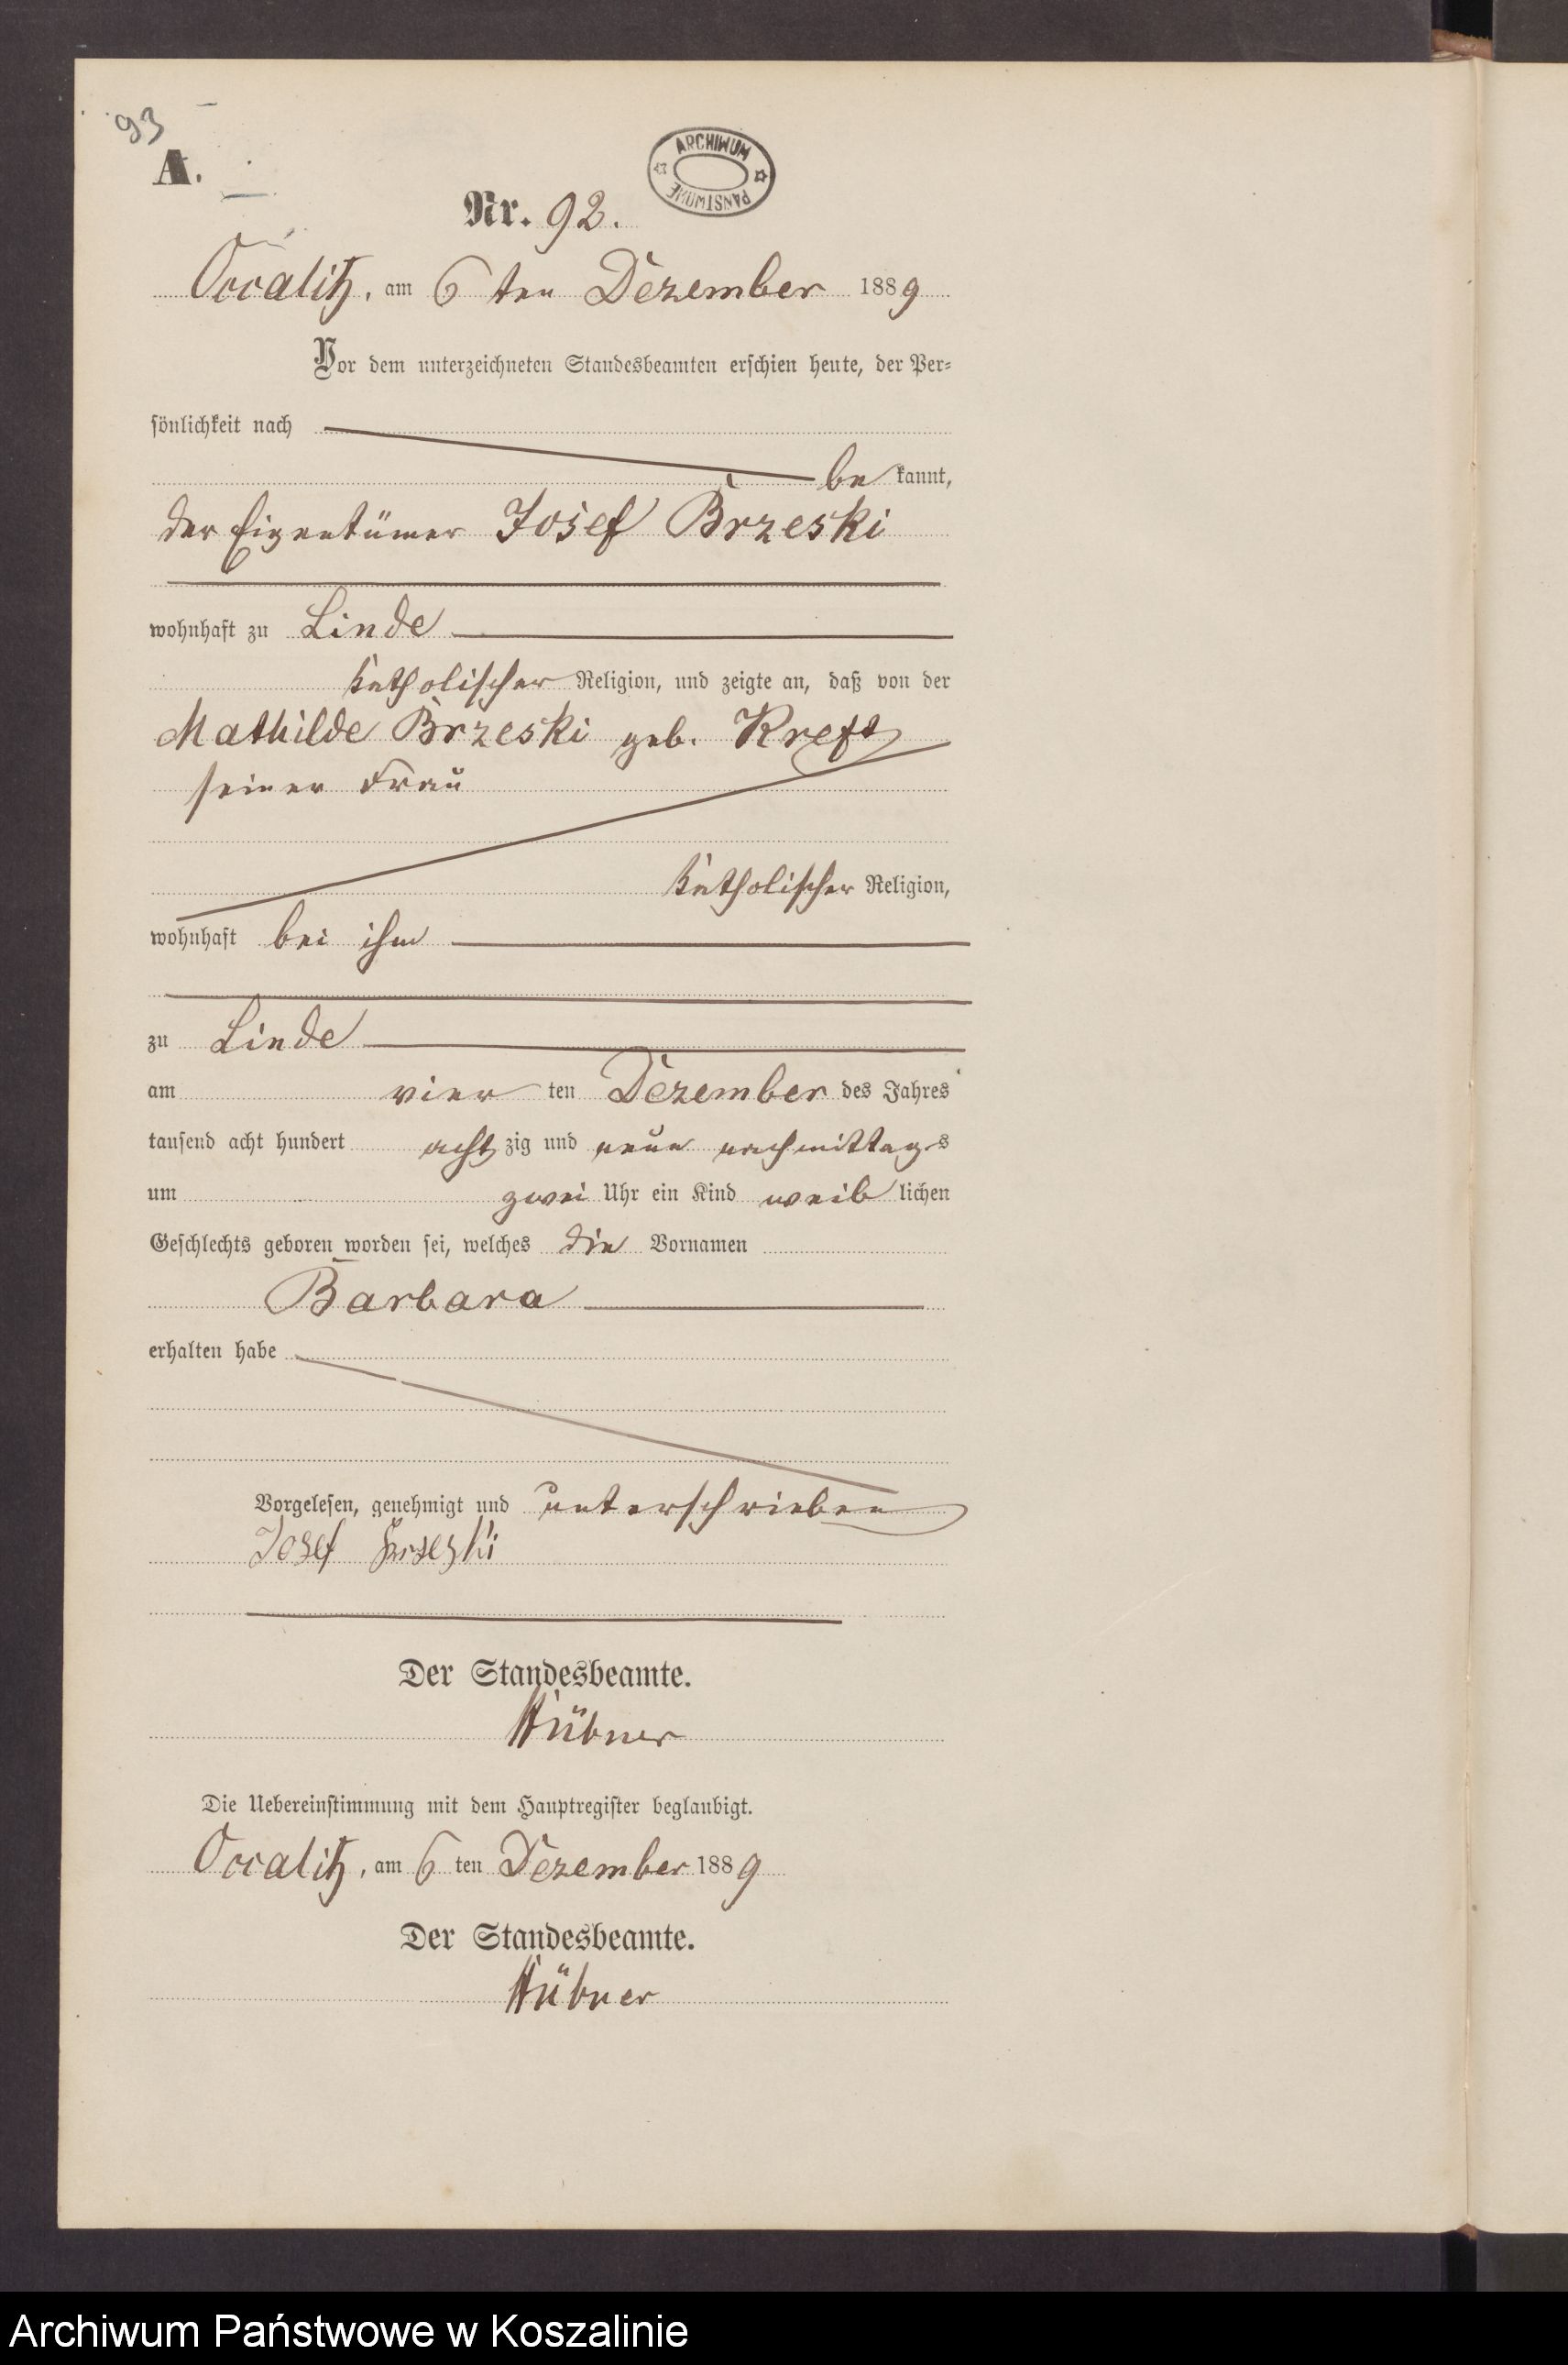 93
A.
ARCHIWUM PAŃSTWOWE
Nr. 92.
Occalitz, am 6 ten Dezember 1889
Vor dem unterzeichneten Standesbeamten erschien heute, der Per-
sönlichkeit nach
be kannt,
der Eigentümer Josef Brzeski
wohnhaft zu Linde
katholischer Religion, und zeigte an, daß von der
Mathilde Brzeski geb. Kreft
seiner Frau
katholischer Religion,
wohnhaft bei ihm
zu Linde
am vier ten Dezember des Jahres
tausend acht hundert acht zig und neun nachmittags
um zwei Uhr ein Kind weib lichen
Geschlechts geboren worden sei, welches die Vornamen
Barbara
erhalten habe
Vorgelesen, genehmigt und unterschrieben
Josef
Der Standesbeamte.
Hübner
Die Uebereinstimmung mit dem Hauptregister beglaubigt.
Occalitz, am 6 ten Dezember 1889
Der Standesbeamte.
Hübner
Archiwum Państwowe w Koszalinie